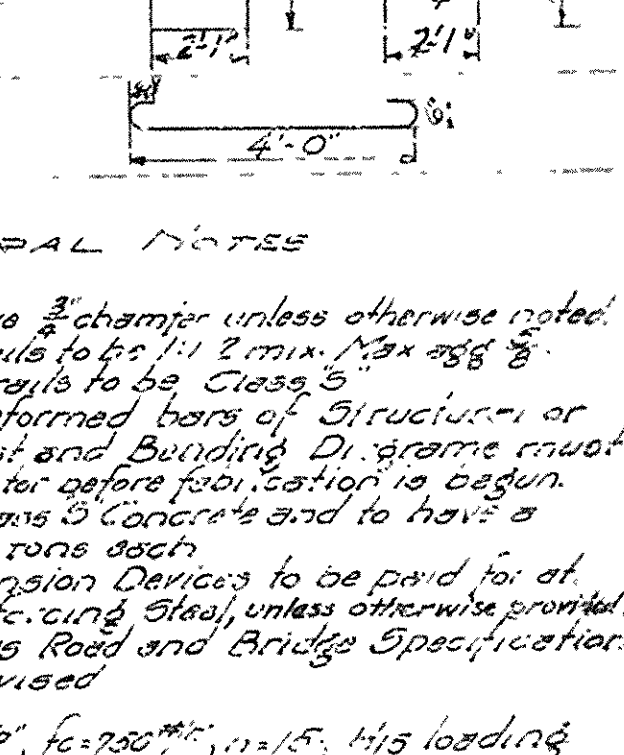 2'-1" 2'-1"
4'-0"
NOTES
3/4" chamfer unless otherwise noted.
to be 1:1:2 mix. Max agg 5/8".
to be Class "S"
bars of Structural or
and Bending Diagrams must
before fabrication is begun.
"S" Concrete and to have a
Tons each
Devices to be paid for at
Steel, unless otherwise provided.
Road and Bridge Specification
fc=750#/□", n=15, H15 loading